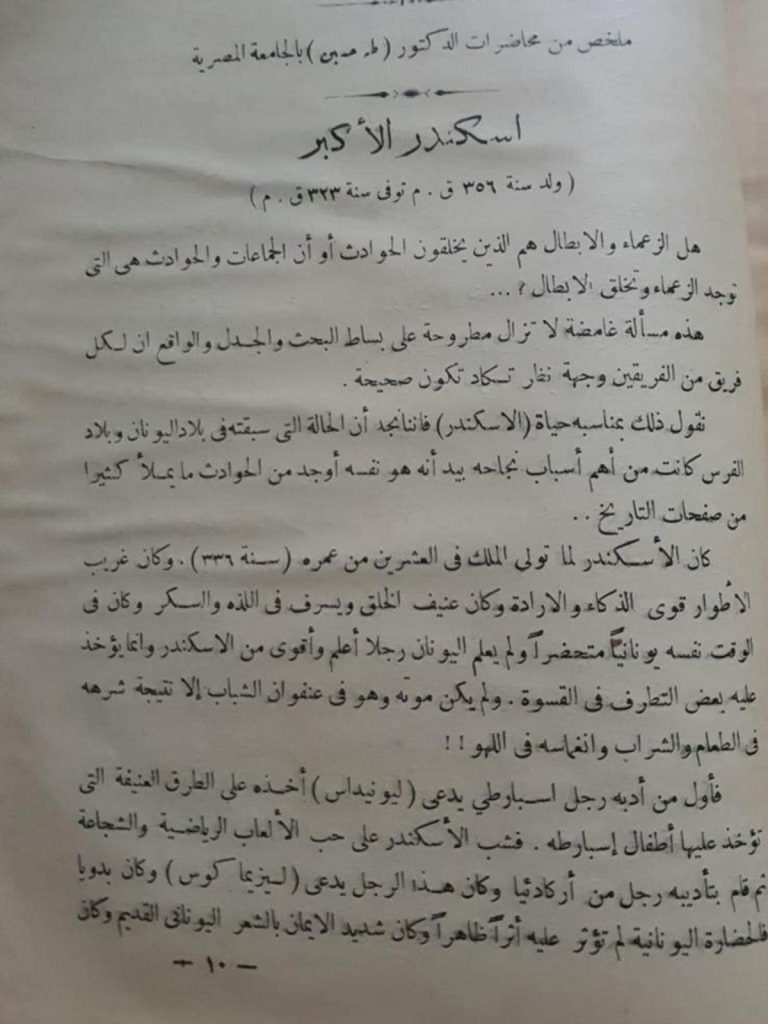 ملخص من محاضرات الدكتور (طه حسين) بالجامعة المصرية
اسكندر الأكبر
(ولد سنة ٣٥٦ ق . م توفى سنة ٣٢٣ ق . م)
هل الزعماء والابطال هم الذين يخلقون الحوادث أو أن الجماعات والحوادث هى التى
توجد الزعماء وتخلق الابطال ? ...
هذه مسألة غامضة لا تزال مطروحة على بساط البحث والجدل والواقع ان لكل
فريق من الفريقين وجهة نظر تكاد تكون صحيحة .
نقول ذلك بمناسبه حياة (الاسكندر) فاننا نجد أن الحالة التى سبقته فى بلاد اليونان وبلاد
الفرس كانت من أهم أسباب نجاحه بيد أنه هو نفسه أوجد من الحوادث ما يملأ كثيرا
من صفحات التاريخ . .
كان الأسكندر لما تولي الملك فى العشرين من عمره (سنة ٣٣٦) . وكان غريب
الاطوار قوى الذكاء والارادة وكان عنيف الخلق ويسرف فى اللذه والسكر وكان فى
الوقت نفسه يونانياً متحضراً ولم يعلم اليونان رجلا أعلم وأقوى من الاسكندر وانما يؤخذ
عليه بعض التطرف فى القسوة . ولم يكن موته وهو فى عنفوان الشباب إلا نتيجة شرهه
فى الطعام والشراب وانغماسه فى اللهو ! !
فأول من أدبه رجل اسبارطي يدعى (ليونيداس) أخذه على الطرق العنيفة التى
تؤخذ عليها أطفال إسبارطه . فشب الأسكندر على حب الألعاب الرياضية والشجاعة
ثم قام بتأديبه رجل من أركادئيا وكان هذا الرجل يدعى (ليزيماكوس) وكان بدويا
فالحضارة اليونانية لم تؤثر عليه أثراً ظاهراً وكان شديد الايمان بالشعر اليونانى القديم وكان
— ١٠ —